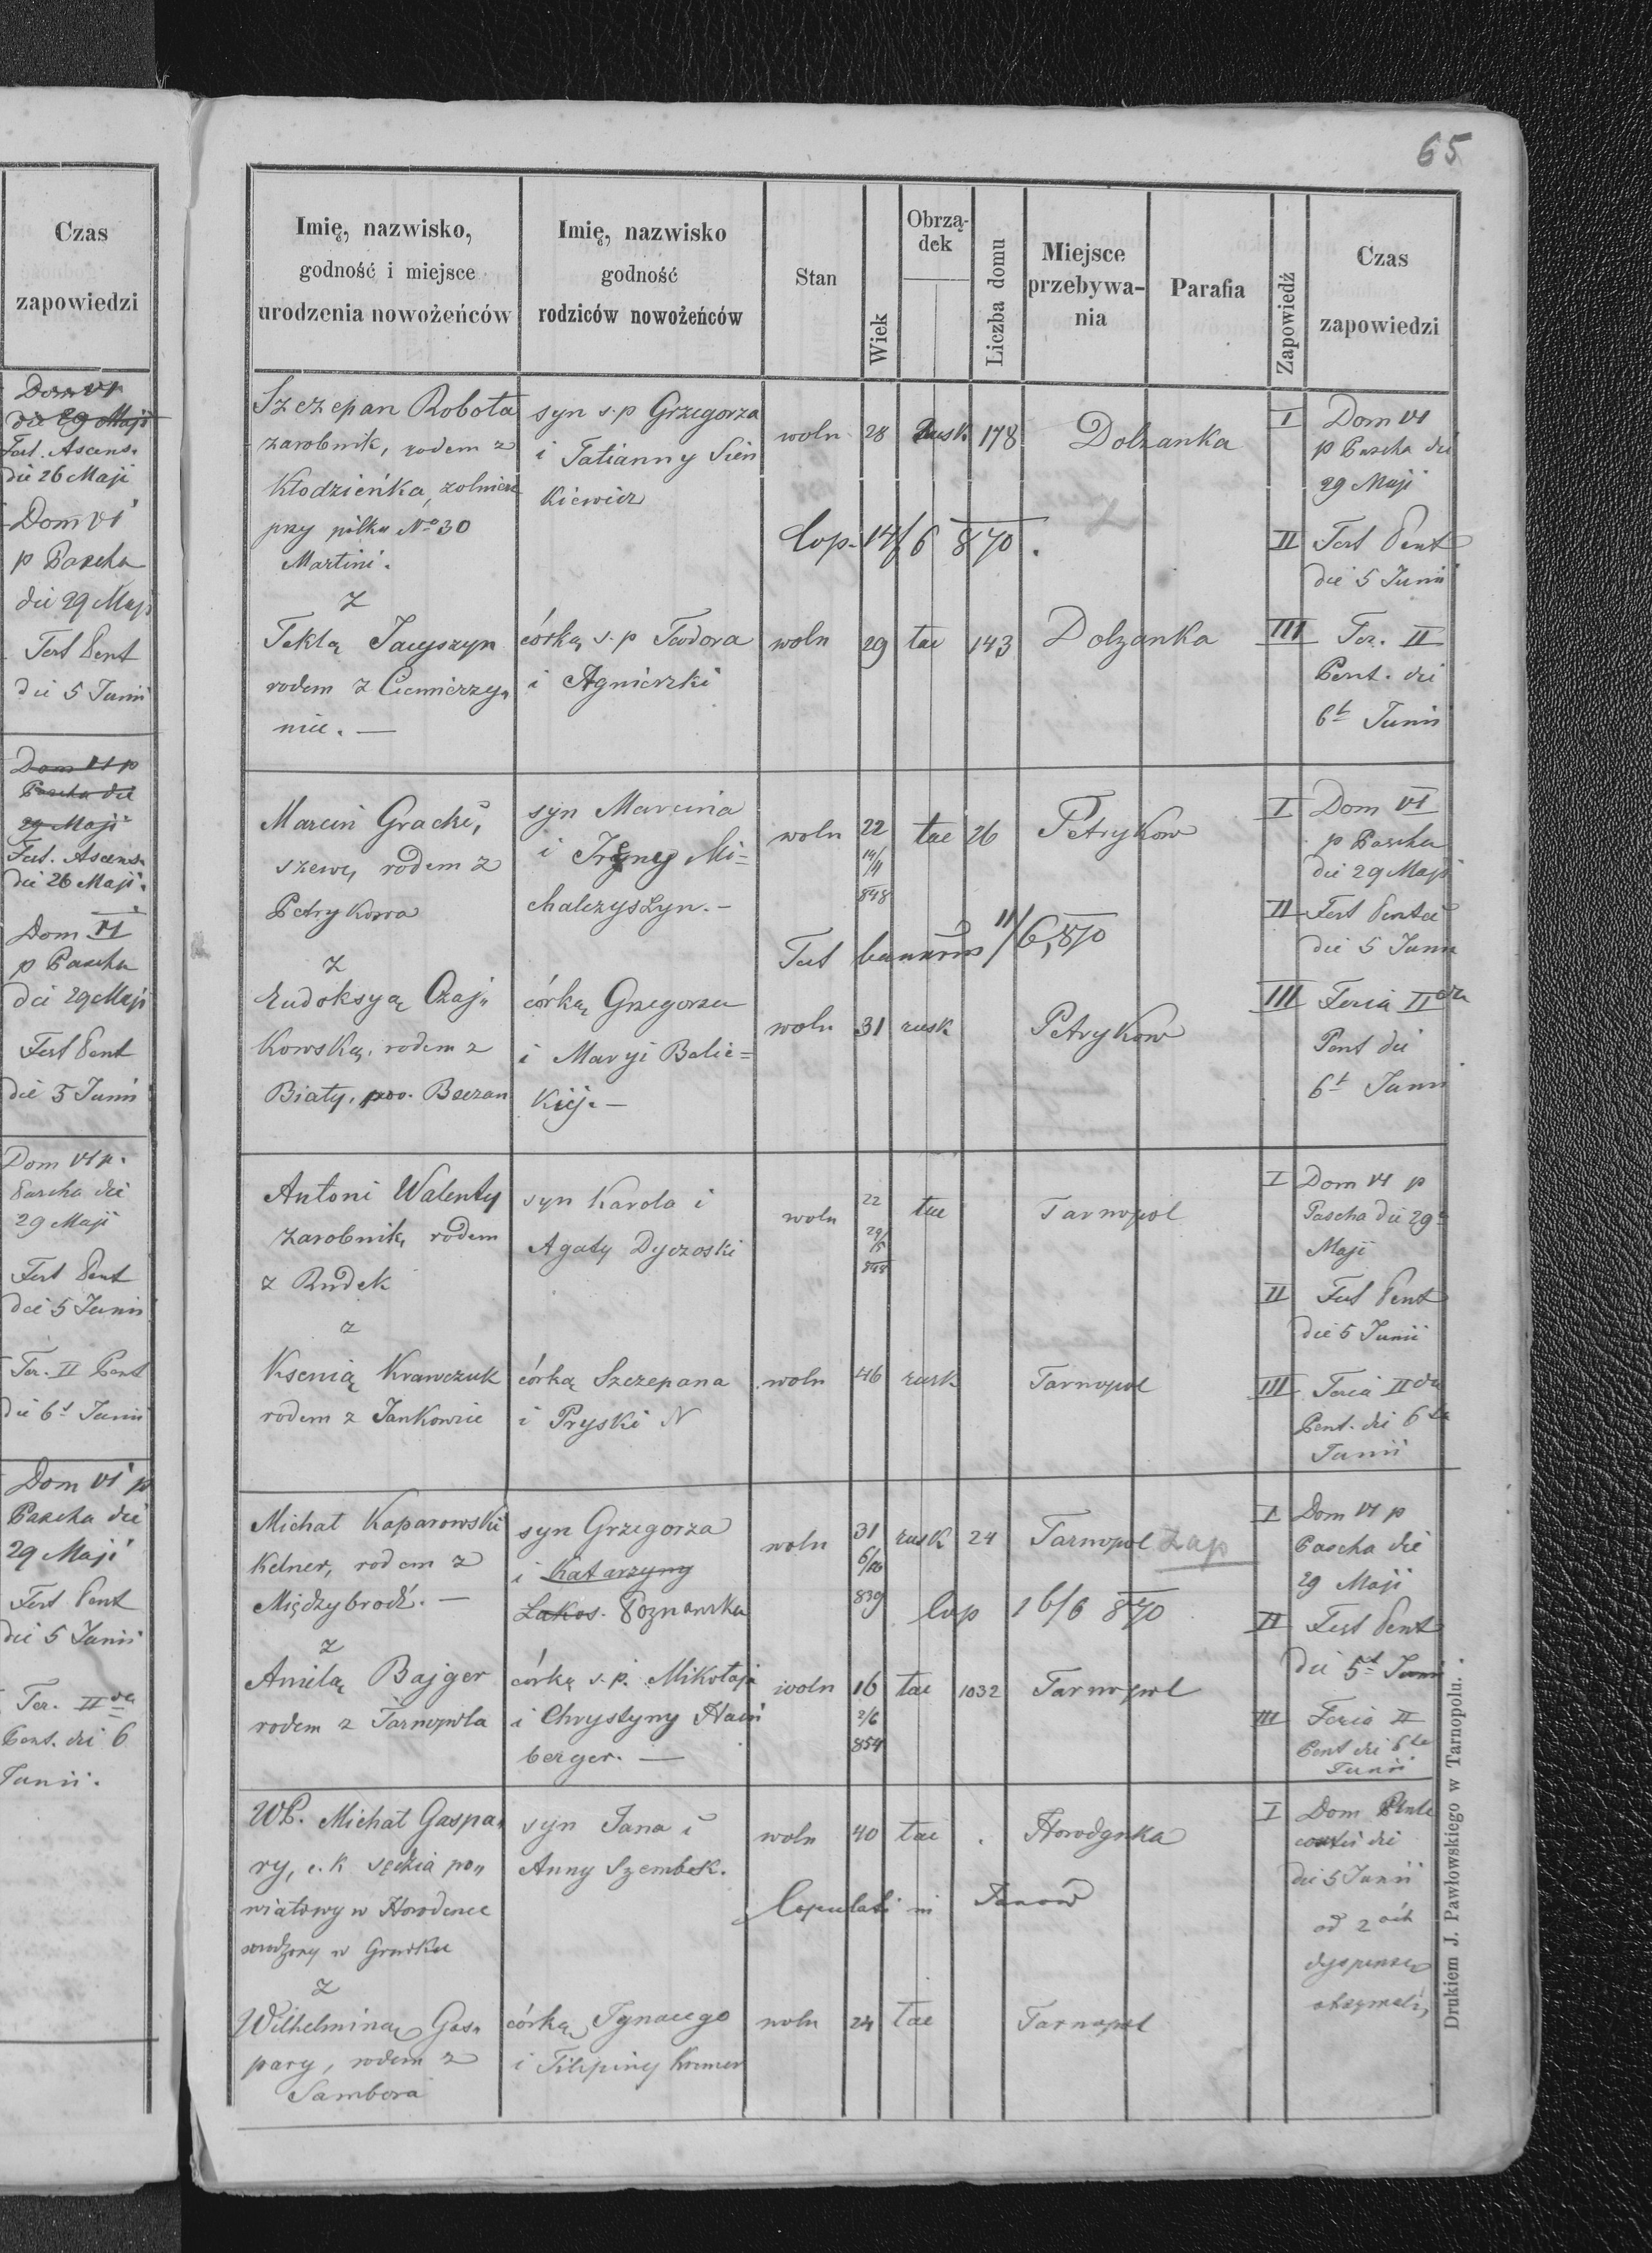 Czas
zapowiedzi
Dom VI
die 29 Maji
Fest. Ascens.
die 26 Maji
Dom VI
p Pascha
die 29 Maji
Fest Pent
die 5 Junii
Dom VI p
Pascha die
29 Maji
Fest. Ascens.
die 26 Maji.
Dom VI
p Pascha
die 29 Maji
Fest Pent
die 5 Junii
Dom VI p.
Pascha die
29 Maji
Fest Pent
die 5 Junii
Fer. II Pent
die 6t Junii
Dom VI p
Pascha die
29 Maji
Fest Pent
die 5 Junii
Fer. II da
Pent. die 6
Junii.
65
Imię, nazwisko,
godność i miejsce
urodzenia nowożeńców
Imię, nazwisko
godność
rodziców nowożeńców
Stan
Wiek
Obrzą-
dek
Liczba domu
Miejsce
przebywa-
nia
Parafia
Zapowiedź
Czas
zapowiedzi
Szczepan Robota
zarobnik, rodem z
Kłodzieńka, zolnierz
przy półku No 30
Martini.
z
Teklą Jacyszyn
rodem z Ciemierzyn
nice. —
syn s.p Grzegorza
i Tatianny Sien
kiewicz
córką s.p Teodora
i Agnieszki
woln 28 rusk 178 Dolzanka
Cop. 14/6 870.
woln 29 tac 143 Dolzanka
I Dom VI
p Pascha die
29 Maji
II Fest Pent
die 5 Junii
III Fer. II
Pent. die
6t Junii
Marcin Gracki,
szewc, rodem z
Petrykowa
z
Eudoksyą Czaj„
kowską, rodem z
Biały, pow. Brzezan
syn Marcina
i Ireny Mi=
chalczyszyn. -
córką Grzegorza
i Maryi Belic=
kiej. —
woln 22 tac 26 Petrykow
14/11
848
11/6, 870
woln 31 rusk Petrykow
I Dom VI
p Pascha
die 29 Maji
II Fest Pent
die 5 Junii
III Feria II da
Pent die
6t Junii
Antoni Walenty
zarobnik, rodem
z Rudek
z
Ksenią Krawczuk
rodem z Jankowiec
syn Karola i
Agaty Dyczoski
córką Szczepana
i Pryski N
woln 22 tac Tarnopol
29/5
848
woln 46 rusk Tarnopol
I Dom VI p
Pascha die 29
Maji
II Fest Pent
die 5 Junii
III Feria II da
Pent. die 6ta
Junii
Michał Kaparowski
kelner, rodem z
Międzybrodź. —
z
Anielą Bajger
rodem z Tarnopola
syn Grzegorza
i Katarzyny
Łakos. Poznanska
córką s.p. Mikołaja
i Chrystyny Hain
berger. —
woln 31 rusk 24 Tarnopol zap
6/10
839
Cop 16/6 870
woln 16 tac 1032 Tarnopol
2/6
854
I Dom VI p
Pascha die
29 Maji
II Fest Pent
die 5t Junii
III Feria II
Pent die 6ta
Junii
WP. Michał Gaspa„
ry, c.k sędzia po„
wiatowy w Horodence
urodzony w Grodku
z
Wilhelminą Gas„
pary, rodem z
Sambora
syn Jana i
Anny Szembek.
córką Ignacego
i Filipiny Kremer
woln 40 tac . Horodynka
Copulati in Janow
woln 24 tac Tarnopol
I Dom Pente
costes die
die 5 Junii
od 2 óch
dyspensę
otrzymali,
Drukiem J. Pawłowskiego w Tarnopolu.